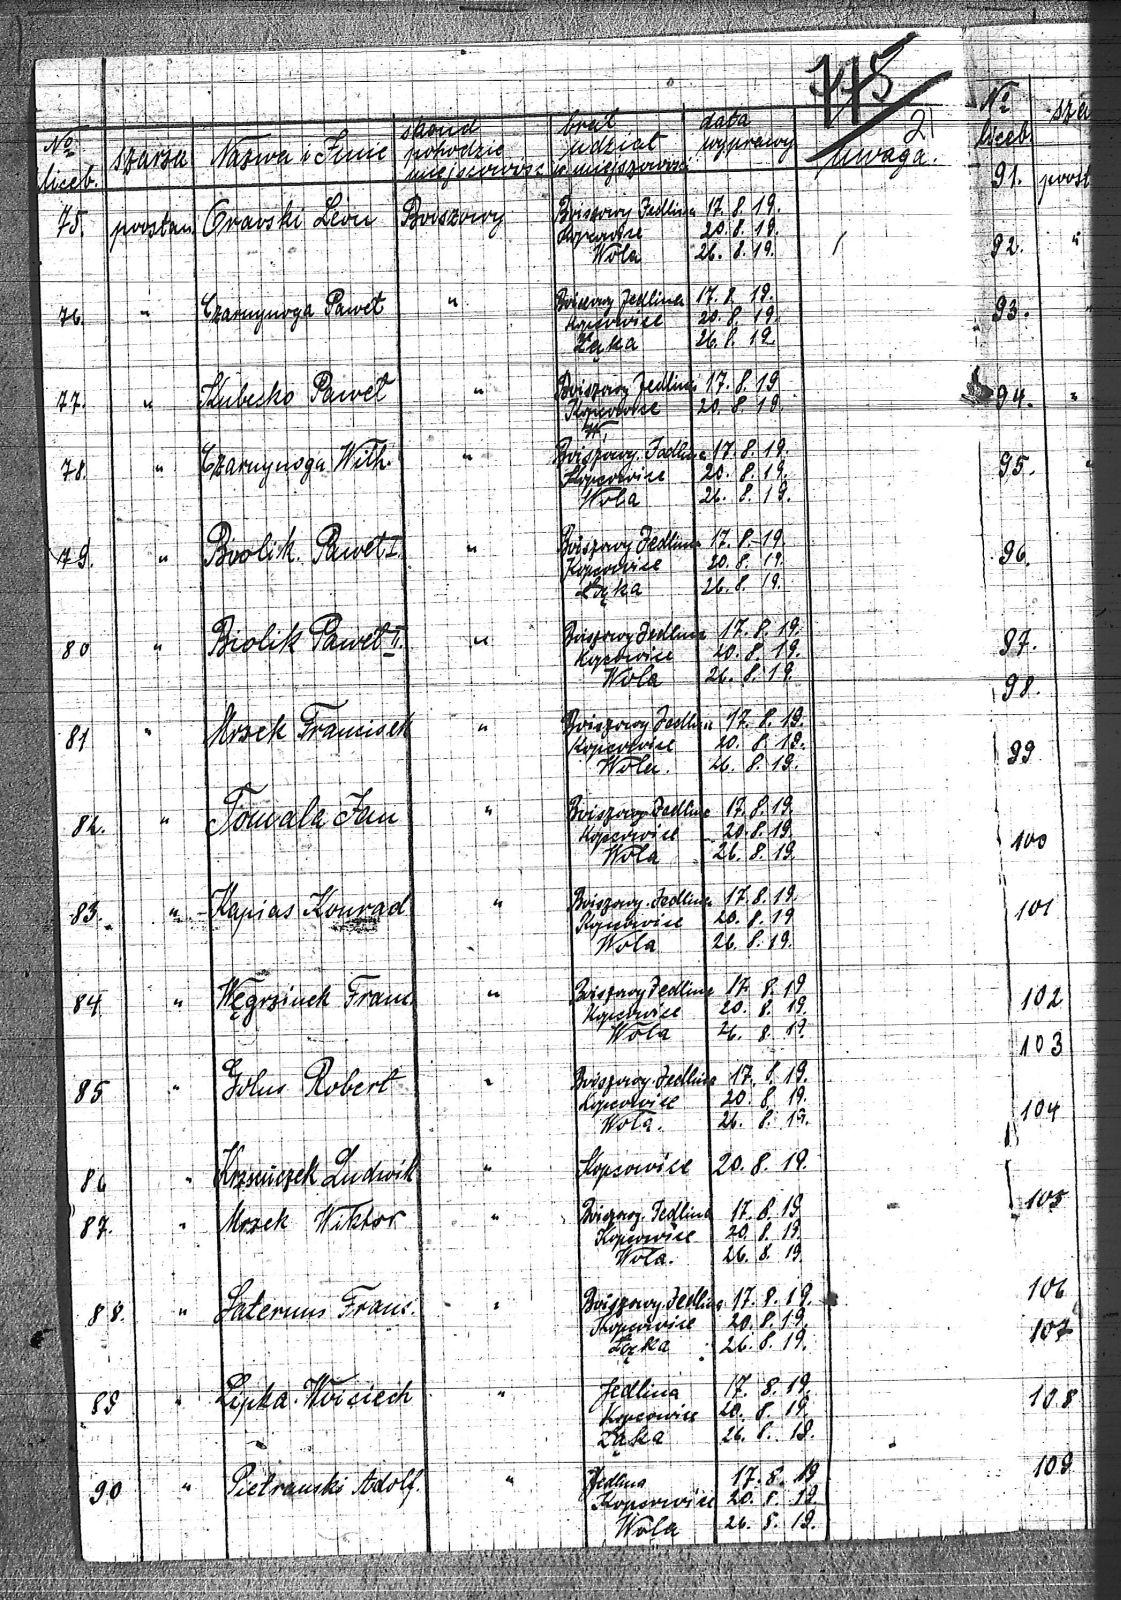 778
21
№ liceb. szarża Nazwa i Imie skond pohodzie miejscowosc brał udział w miejszowości data wyprawy uwaga.
75. postan Oravski Leon Boiszowy Boiszowy Jedlina 17. 8. 19.
Kopcowice 20. 8. 19.
Wola 26. 8. 19.
76. " Czarnynoga Paweł " Boiszowy Jedlina 17. 8. 19.
Kopcowice 20. 8. 19.
Łąka 26. 8. 19.
77. " Kubesko Paweł " Boiszowy Jedlina 17. 8. 19
Kopcowice 20. 8. 19.
W.
78. " Czarnynoga Wilh. " Boiszowy Jedlina 17. 8. 19.
Kopcowice 20. 8. 19.
Wola 26. 8. 19.
79. " Biolik Paweł I. " Boiszowy Jedlina 17. 8. 19.
Kopcowice 20. 8. 19.
Łąka 26. 8. 19.
80 " Biolik Paweł II. " Boiszowy Jedlina 17. 8. 19.
Kopcowice 20. 8. 19.
Wola 26. 8. 19.
81 " Mrzek Francisek " Boiszowy Jedlina 17. 8. 19.
Kopcowice 20. 8. 19.
Wola. 26. 8. 19.
82. " Tomala Jan " Boiszowy Jedlina 17. 8. 19.
Kopcowice 20. 8. 19.
Wola 26. 8. 19.
83. " Kapias Konrad " Boiszowy Jedlina 17. 8. 19.
Kopcowice 20. 8. 19
Wola 26. 8. 19.
84 " Węgrzinek Franc. " Boiszowy Jedlina 17. 8. 19
Kopcowice 20. 8. 19.
Wola 26. 8. 19.
85 " Golus Robert " Boiszowy Jedlina 17. 8. 19.
Kopcowice 20. 8. 19.
Wola. 26. 8. 19.
86 " Ludwik " Kopcowice 20. 8. 19.
87. " Mrzek Wiktor " Boiszowy Jedlina 17. 8. 19
Kopcowice 20. 8. 19.
Wola. 26. 8. 19.
88. " Laterus Franc. " Boiszowy Jedlina 17. 8. 19.
Kopcowice 20. 8. 19.
Łąka 26. 8. 19.
89 " Lipka Woiciech " Jedlina 17. 8. 19.
Kopcowice 20. 8. 19.
Łąka 26. 8. 19.
90 " Pietranski Adolf. " Jedlina 17. 8. 19
Kopcowice 20. 8. 19.
Wola 26. 8. 19.
№ liceb. sza
91. post
92. "
93.
94. "
95.
96.
97.
98.
99
100
101
102
103
104
105
106
107
108
109